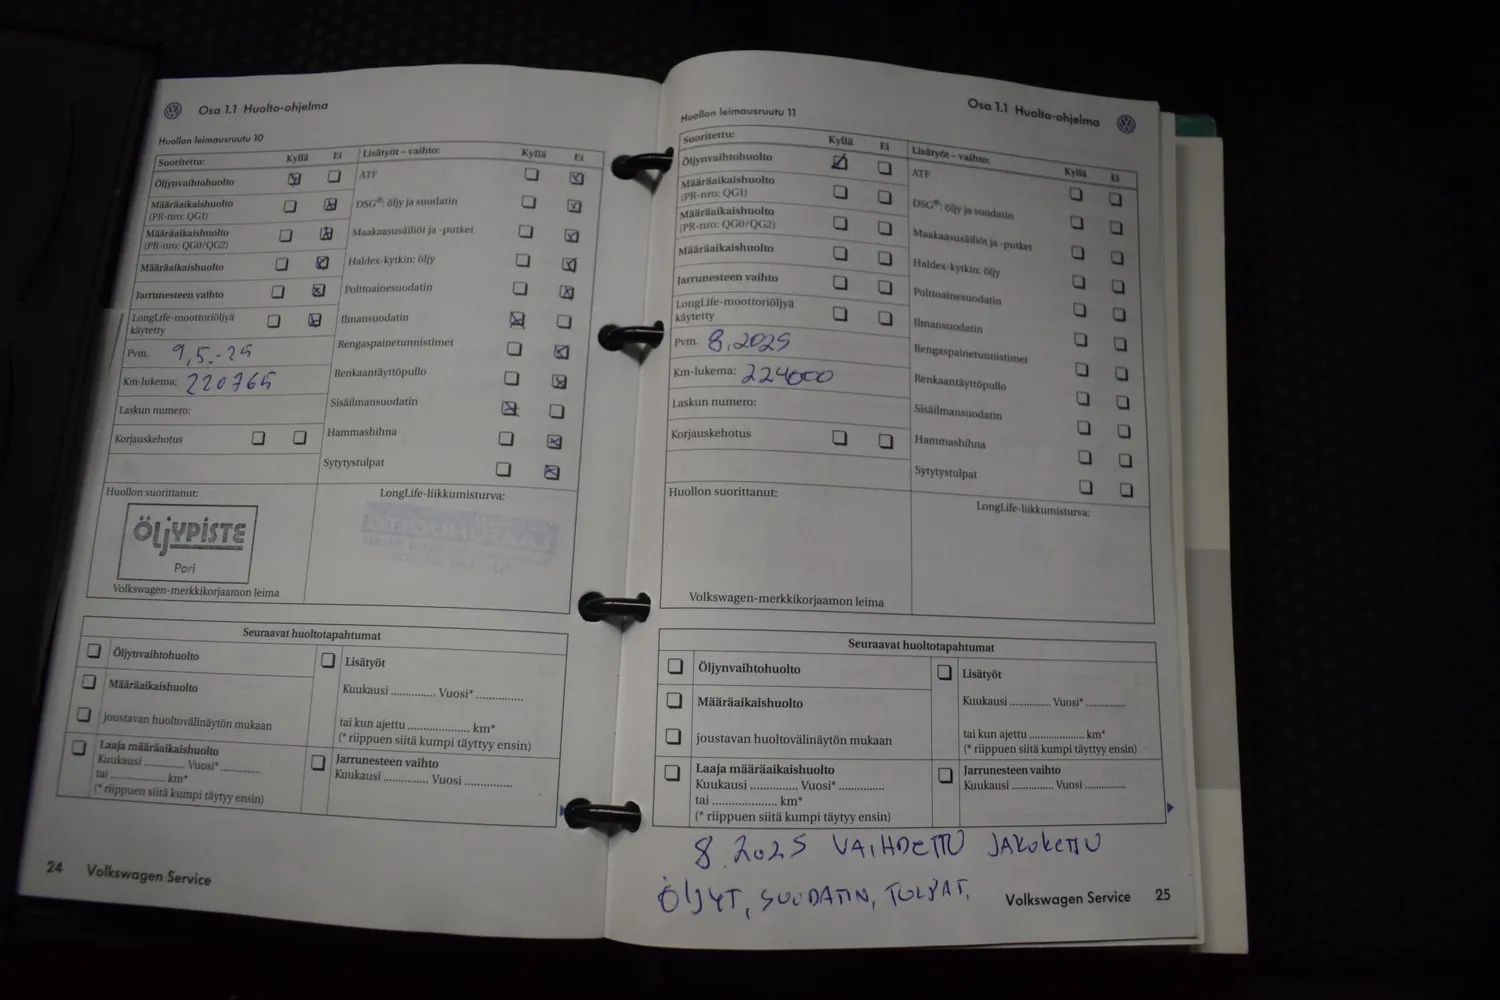 Osa 1.1 Huolto-ohjelma
Huollon leimausruutu 10
Suoritettu: Kyllä Ei
Öljynvaihtohuolto
Määräaikaishuolto
(PR-nro: QG1)
Määräaikaishuolto
(PR-nro: QG0/QG2)
Määräaikaishuolto
Jarrunesteen vaihto
LongLife-moottoriöljyä
käytetty
Pvm. 9.5.-25
Km-lukema: 220765
Laskun numero:
Korjauskehotus
Lisätyöt – vaihto: Kyllä Ei
ATF
DSG®: öljy ja suodatin
Maakaasusäiliöt ja -putket
Haldex-kytkin: öljy
Polttoainesuodatin
Ilmansuodatin
Rengaspainetunnistimet
Renkaantäyttöpullo
Sisäilmansuodatin
Hammashihna
Sytytystulpat
Huollon suorittanut:
ÖLJYPISTE
Pori
Volkswagen-merkkikorjaamon leima
LongLife-liikkumisturva:
Seuraavat huoltotapahtumat
Öljynvaihtohuolto
Määräaikaishuolto
joustavan huoltovälinäytön mukaan
Laaja määräaikaishuolto
Kuukausi .............. Vuosi* ..............
tai .................... km*
(* riippuen siitä kumpi täytyy ensin)
Lisätyöt
Kuukausi .............. Vuosi* ..............
tai kun ajettu .................... km*
(* riippuen siitä kumpi täyttyy ensin)
Jarrunesteen vaihto
Kuukausi .............. Vuosi ..............
24 Volkswagen Service
Osa 1.1 Huolto-ohjelma
Huollon leimausruutu 11
Suoritettu: Kyllä Ei
Öljynvaihtohuolto
Määräaikaishuolto
(PR-nro: QG1)
Määräaikaishuolto
(PR-nro: QG0/QG2)
Määräaikaishuolto
Jarrunesteen vaihto
LongLife-moottoriöljyä
käytetty
Pvm. 8.2025
Km-lukema: 224000
Laskun numero:
Korjauskehotus
Lisätyöt – vaihto: Kyllä Ei
ATF
DSG®: öljy ja suodatin
Maakaasusäiliöt ja -putket
Haldex-kytkin: öljy
Polttoainesuodatin
Ilmansuodatin
Rengaspainetunnistimet
Renkaantäyttöpullo
Sisäilmansuodatin
Hammashihna
Sytytystulpat
Huollon suorittanut:
Volkswagen-merkkikorjaamon leima
LongLife-liikkumisturva:
Seuraavat huoltotapahtumat
Öljynvaihtohuolto
Määräaikaishuolto
joustavan huoltovälinäytön mukaan
Laaja määräaikaishuolto
Kuukausi .............. Vuosi* ..............
tai .................... km*
(* riippuen siitä kumpi täytyy ensin)
Lisätyöt
Kuukausi .............. Vuosi* ..............
tai kun ajettu .................... km*
(* riippuen siitä kumpi täyttyy ensin)
Jarrunesteen vaihto
Kuukausi .............. Vuosi ..............
8.2025 VAIHDETTU JAKOKETJU
ÖLJYT, SUODATIN, TULPAT.
Volkswagen Service 25